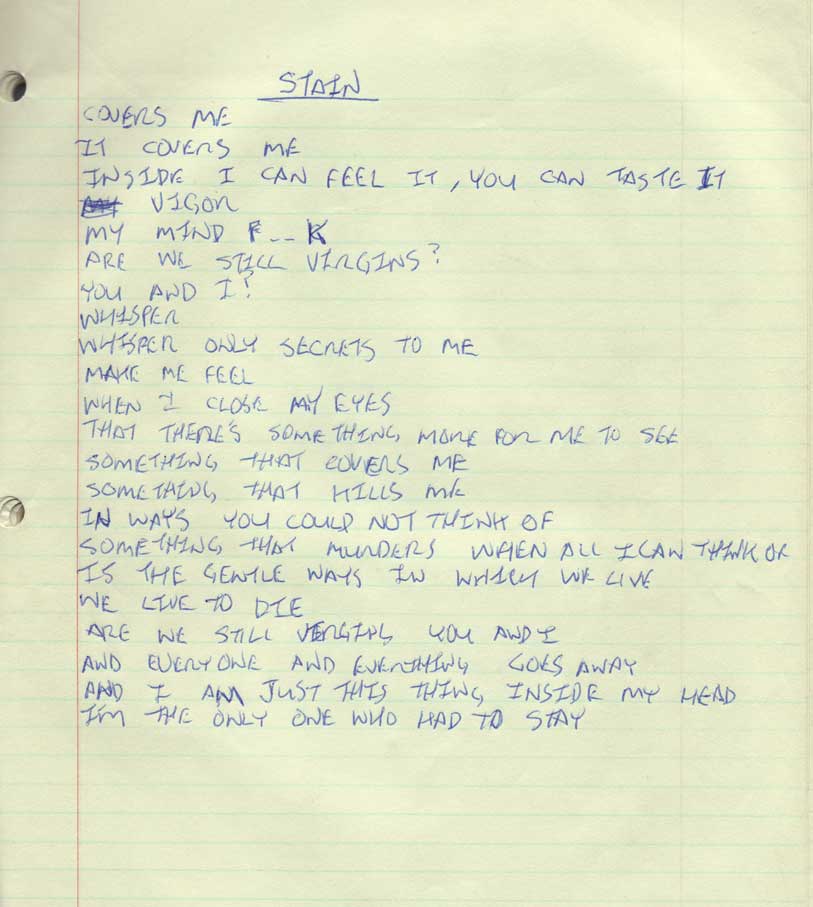 STAIN
COVERS ME
IT COVERS ME
INSIDE I CAN FEEL IT, YOU CAN TASTE IT
VIGOR
MY MIND F--K
ARE WE STILL VIRGINS?
YOU AND I?
WHISPER
WHISPER ONLY SECRETS TO ME
MAKE ME FEEL
WHEN I CLOSE MY EYES
THAT THERE'S SOMETHING MORE FOR ME TO SEE
SOMETHING THAT COVERS ME
SOMETHING THAT KILLS ME
IN WAYS YOU COULD NOT THINK OF
SOMETHING THAT MURDERS WHEN ALL I CAN THINK OF
IS THE GENTLE WAYS IN WHICH WE LIVE
WE LIVE TO DIE
ARE WE STILL VIRGINS YOU AND I
AND EVERYONE AND EVERYTHING GOES AWAY
AND I AM JUST THIS THING INSIDE MY HEAD
I'M THE ONLY ONE WHO HAD TO STAY